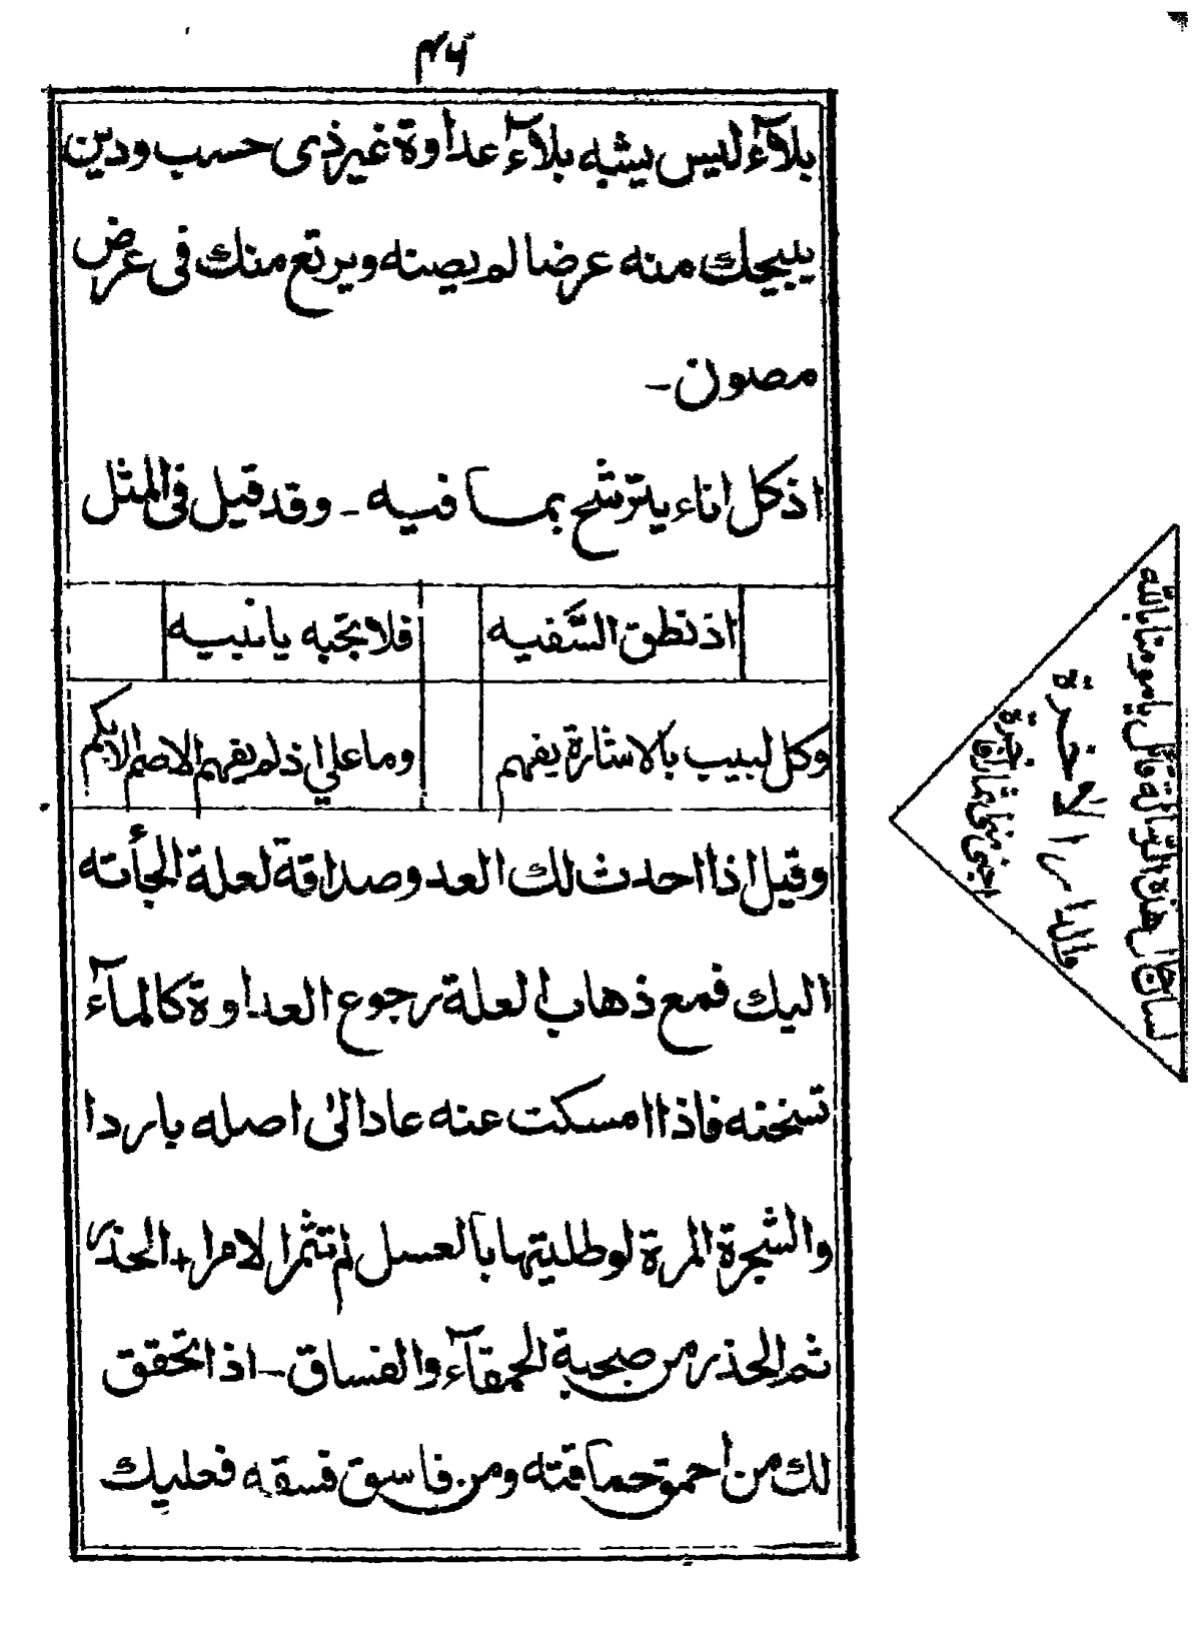 ٤٦
بلآء ليس يشبه بلآء عداوة غير ذى حسب ودين
يبيحك منه عرضا لم يصنه ويرتع منك فى عرض
مصون ـ
اذ كل اناء يترشح بما فيه ـ وقد قيل فى المثل
اذ نطق السَّفيه فلا تجبه يا نبيه
وكل لبيب بالاشارة يفهم وما على اذ لم يفهم الاصم الابكم
وقيل اذا احدث لك العدو صداقة لعلة الجأته
اليك فمع ذهاب العلة رجوع العداوة كالمآء
تسخنه فاذا امسكت عنه عاد الى اصله باردا
والشجرة المرة لو طليتها بالعسل لم تثمر الا مرا + الحذر
ثم الحذر من صحبة الحمقآء والفساق ـ اذا تحقق
لك من احمق حماقته ومن فاسق فسقه فعليك
والدار الاخرة